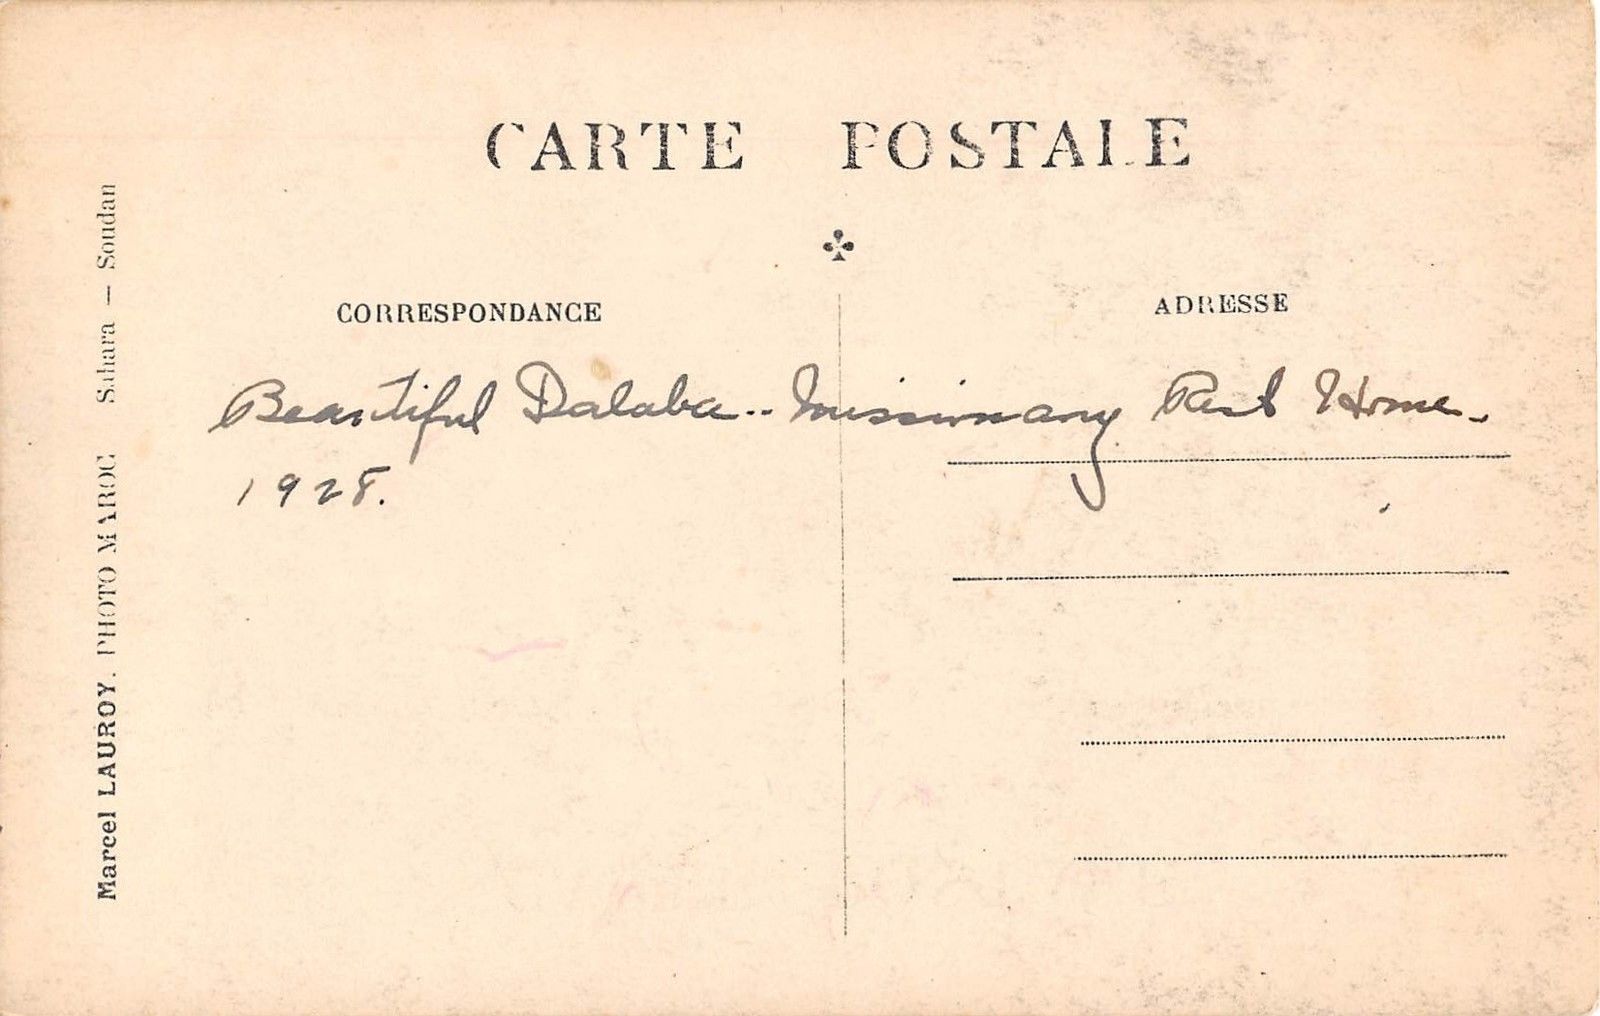 CARTE POSTALE
CORRESPONDANCE
ADRESSE
Beautiful Dalaba.. Missionary Rest Home.
1928.
Marcel LAUROY. PHOTO MAROC Sahara — Soudan